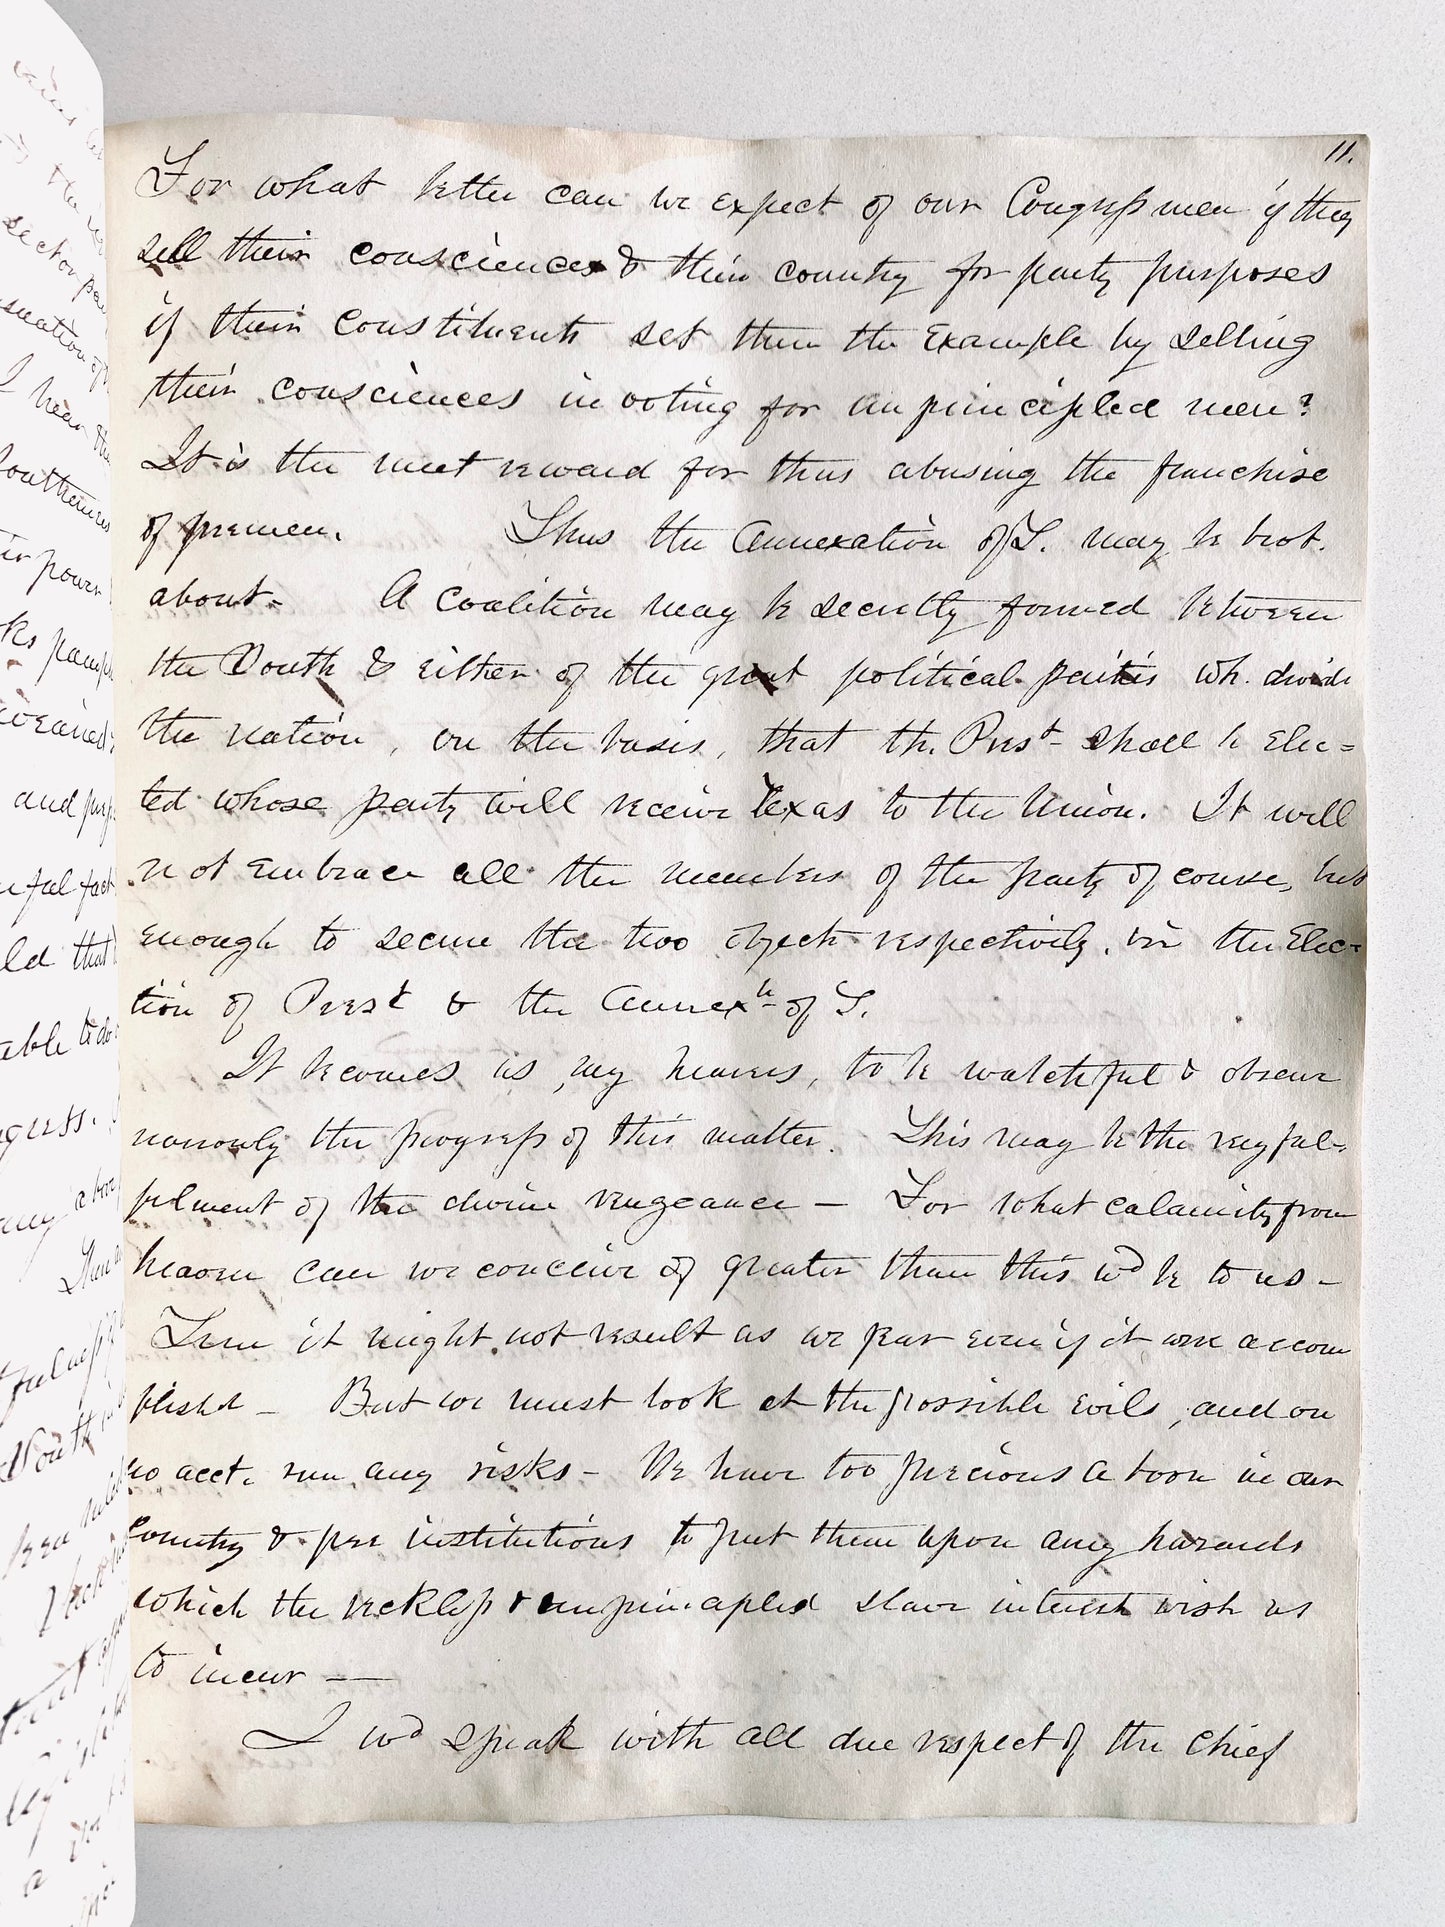 11.
For what better can we expect of our Congressmen if they
sell their consciences & their country for party purposes
if their constituents set them the Example by selling
their consciences in voting for unprincipled men?
It is the meet reward for thus abusing the franchise
of freemen. Thus the Annexation of T. may be brot.
about- A coalition may be secretly formed between
the South & either of the great political parties wh. divide
the nation, on the basis, that th. Prest- shall be elec=
ted whose party will receive Texas to the Union. It will
not embrace all the members of the party of course, but
enough to secure the two objects respectively, viz the Elec=
tion of Prest & the Annexn- of T.
It becomes us, my hearers, to be watchful & observe
narrowly the progress of this matter. This may be the very ful-
filment of the divine vengeance — For what calamity from
heaven can we conceive of greater than this wd be to us -
True it might not result as we fear even if it were accom
plishd - But we must look at the possible evils, and on
no acct. run any risks - We have too precious a boon in our
Country & free institutions to put them upon any hazards
which the reckless & unprincipled slave interest wish us
to incur —
I wd speak with all due respect of the chief
sector
I hear the
Southerners
power
and
ful fact
ld that
able to do
ngress.
any
South
a